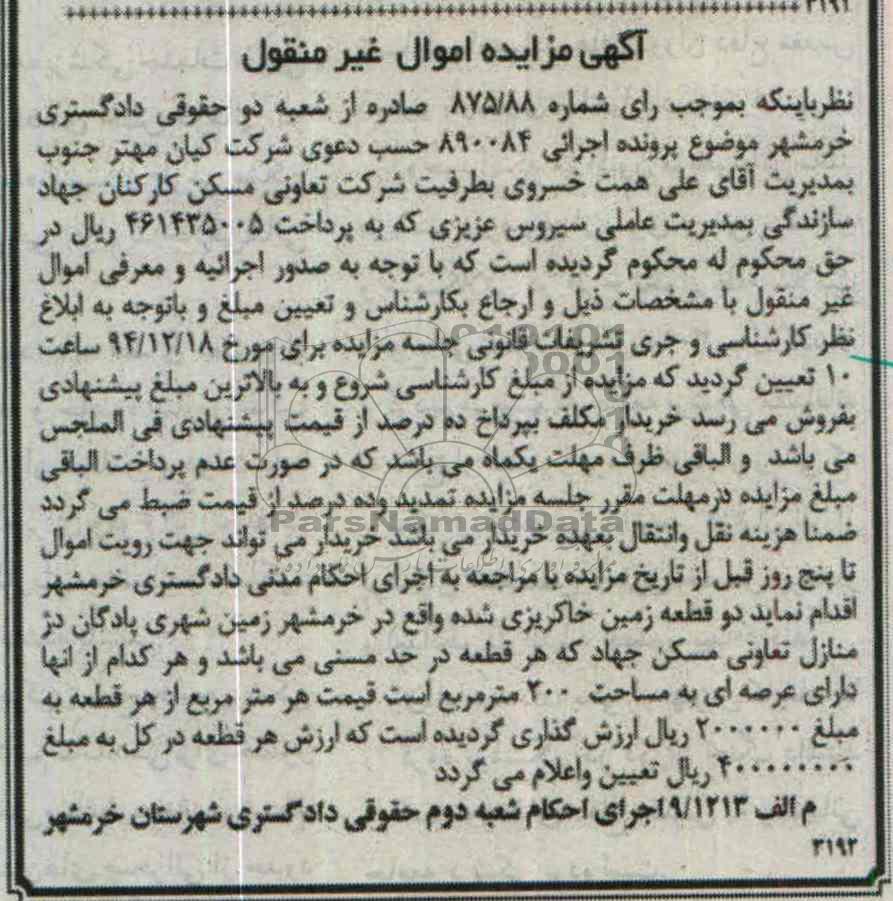 ۳۱۹۲
آگهی مزایده اموال غیر منقول
نظرباینکه بموجب رای شماره ۸۷۵/۸۸ صادره از شعبه دو حقوقی دادگستری
خرمشهر موضوع پرونده اجرائی ۸۹۰۰۸۴ حسب دعوی شرکت کیان مهتر جنوب
بمدیریت آقای علی همت خسروی بطرفیت شرکت تعاونی مسکن کارکنان جهاد
سازندگی بمدیریت عاملی سیروس عزیزی که به پرداخت ۴۶۱۴۳۵۰۰۵ ریال در
حق محکوم له محکوم گردیده است که با توجه به صدور اجرائیه و معرفی اموال
غیر منقول با مشخصات ذیل و ارجاع بکارشناس و تعیین مبلغ و باتوجه به ابلاغ
نظر کارشناسی و جری تشریفات قانونی جلسه مزایده برای مورخ ۹۴/۱۲/۱۸ ساعت
۱۰ تعیین گردید که مزایده از مبلغ کارشناسی شروع و به بالاترین مبلغ پیشنهادی
بفروش می رسد خریدار مکلف بپرداخ ده درصد از قیمت پیشنهادی فی الملجس
می باشد و الباقی ظرف مهلت یکماه می باشد که در صورت عدم پرداخت الباقی
مبلغ مزایده درمهلت مقرر جلسه مزایده تمدید وده درصد از قیمت ضبط می گردد
ضمنا هزینه نقل وانتقال بعهده خریدار می باشد خریدار می تواند جهت رویت اموال
تا پنج روز قبل از تاریخ مزایده با مراجعه به اجرای احکام مدنی دادگستری خرمشهر
اقدام نماید دو قطعه زمین خاکریزی شده واقع در خرمشهر زمین شهری پادگان دژ
منازل تعاونی مسکن جهاد که هر قطعه در حد مسنی می باشد و هر کدام از انها
دارای عرصه ای به مساحت ۲۰۰ مترمربع است قیمت هر متر مربع از هر قطعه به
مبلغ ۲۰۰۰۰۰۰ ریال ارزش گذاری گردیده است که ارزش هر قطعه در کل به مبلغ
۴۰۰۰۰۰۰۰۰ ریال تعیین واعلام می گردد
م الف ۹/۱۲۱۳ اجرای احکام شعبه دوم حقوقی دادگستری شهرستان خرمشهر
۳۱۹۲
ParsNamadData